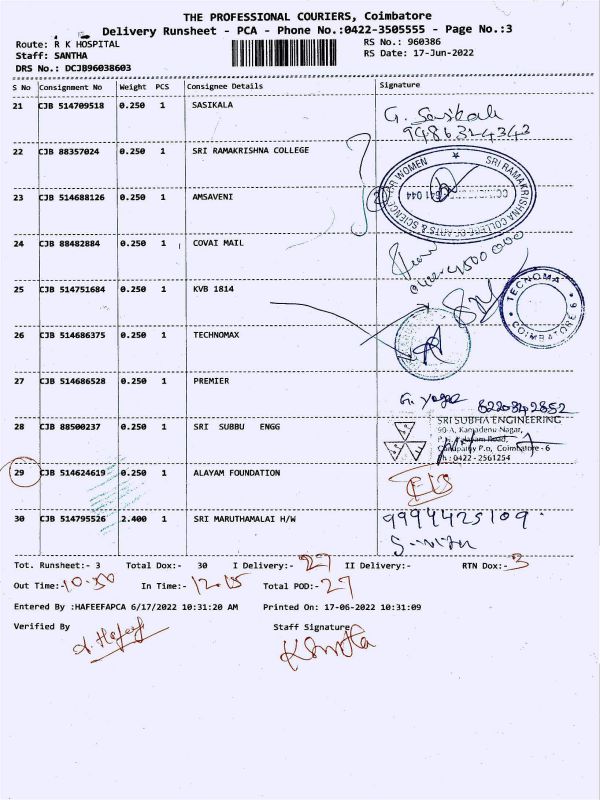 THE PROFESSIONAL COURIERS, Coimbatore
Delivery Runsheet - PCA - Phone No.:0422-3505555 - Page No.:3
Route: R K HOSPITAL RS No.: 960386
Staff: SANTHA RS Date: 17-Jun-2022
DRS No.: DCJB96038603
S No Consignment No Weight PCS Consignee Details Signature
21 CJB 514709518 0.250 1 SASIKALA G. Sasikala
9486324343
22 CJB 88357024 0.250 1 SRI RAMAKRISHNA COLLEGE
SRI RAMAKRISHNA COLLEGE OF ARTS & SCIENCE FOR WOMEN
23 CJB 514688126 0.250 1 AMSAVENI
24 CJB 88482884 0.250 1 COVAI MAIL
25 CJB 514751684 0.250 1 KVB 1814
TECNOMA
COIMBATORE 6
26 CJB 514686375 0.250 1 TECHNOMAX
27 CJB 514686528 0.250 1 PREMIER
8220842852
28 CJB 88500237 0.250 1 SRI SUBBU ENGG SRI SUBHA ENGINEERING
90-A, Kamadenu Nagar,
P.o, Coimbatore - 6
Ph : 0422 - 2561254
29 CJB 514624619 0.250 1 ALAYAM FOUNDATION
30 CJB 514795526 2.400 1 SRI MARUTHAMALAI H/W 9994425109
Tot. Runsheet:- 3 Total Dox:- 30 I Delivery:- 27 II Delivery:- RTN Dox:- 3
Out Time:- 10.30 In Time:- 12.15 Total POD:- 27
Entered By :HAFEEFAPCA 6/17/2022 10:31:20 AM Printed On: 17-06-2022 10:31:09
Verified By Staff Signature